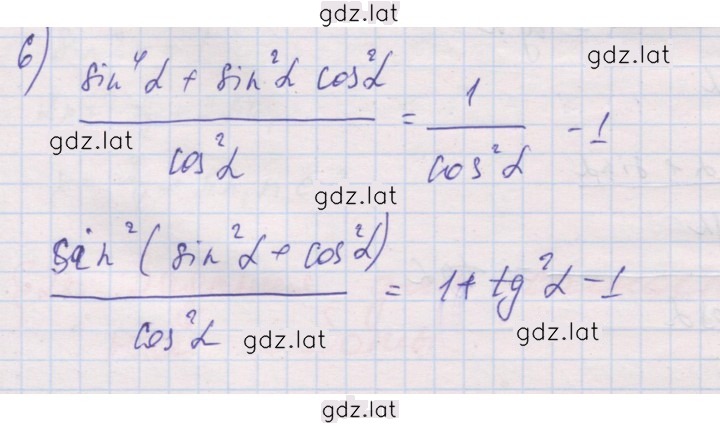 gdz.lat
б) sin⁴α + sin²α cos²α / cos²α = 1 / cos²α - 1
gdz.lat
gdz.lat
gdz.lat
sin²(sin²α + cos²α) / cos²α = 1 + tg²α - 1
gdz.lat
gdz.lat
gdz.lat